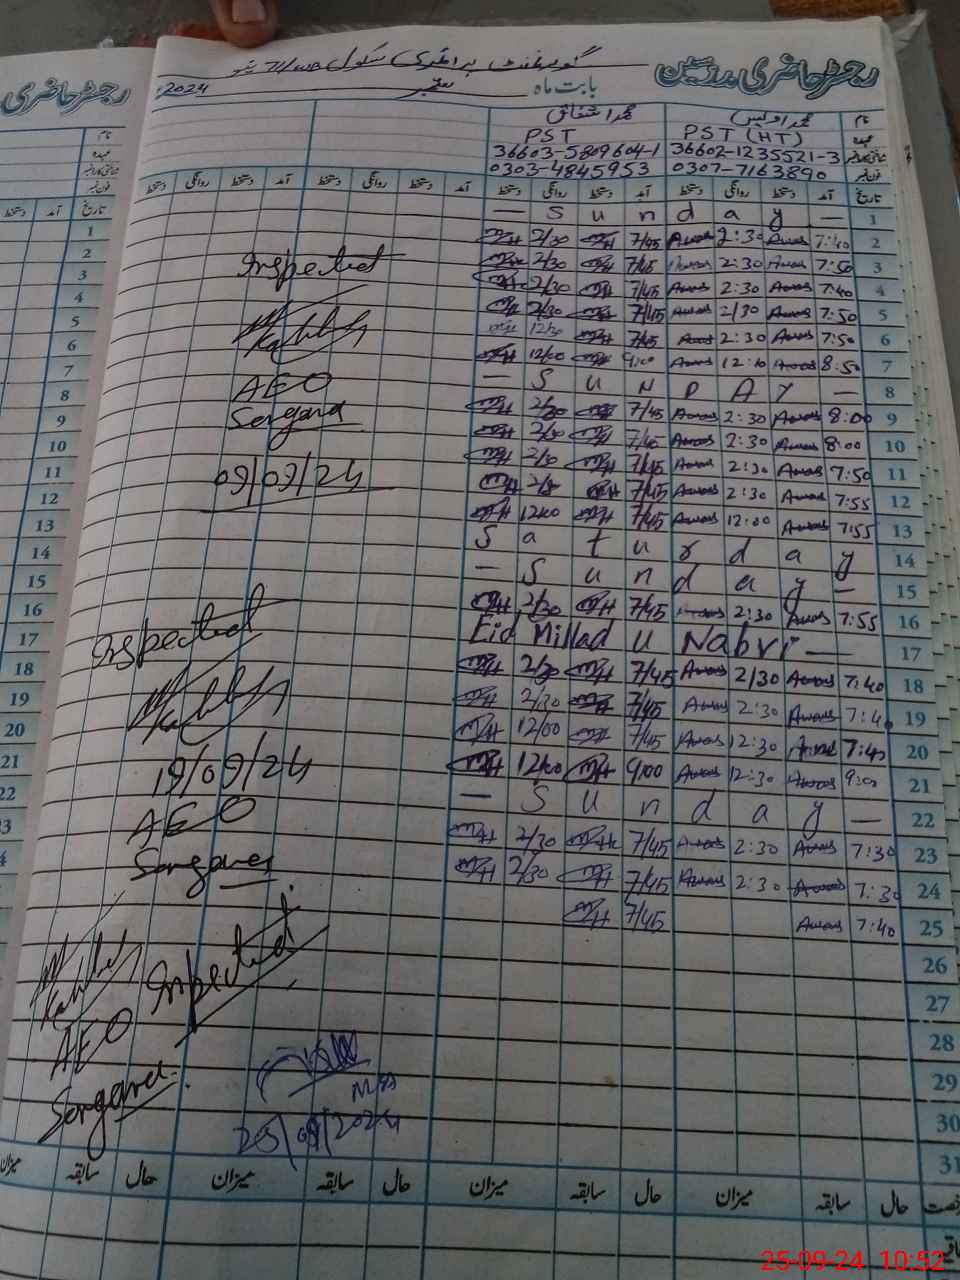 رجسٹر حاضری مدرسین گورنمنٹ پرائمری سکول 71/WB
بابت ماہ ستمبر 2024
رجسٹر حاضری
نام محمد اویس محمد اشفاق
عہدہ PST (HT) PST
شناختی کارڈ نمبر 36602-1235521-3 36603-5809604-1
فون نمبر 0303-7163890 0303-4845953
تاریخ آمد دستخط روانگی دستخط آمد دستخط روانگی دستخط آمد دستخط روانگی دستخط آمد دستخط روانگی دستخط
1 — Sunday —
2 7:40 Awais 2:30 Awais 7/45 2/30
3 7:50 Awais 2:30 7/45 2/30
4 7:40 Awais 2:30 Awais 7/45 2/30
5 7:50 Awais 2/30 Awais 7/45 2/30
6 7:50 Awais 2:30 Awais 7/45 12/30
7 8:50 Awais 12:10 Awais 9:00 12/00
8 — SUNDAY —
9 8:00 Awais 2:30 Awais 7/45 2/30
10 8:00 Awais 2:30 Awais 7/45 2/30
11 7:50 Awais 2:30 Awais 7/45 2/30
12 7:55 Awais 2:30 Awais 7/45
13 7:55 Awais 12:00 Awais 7/45 12/00
14 Saturday
15 — Sunday —
16 7:55 Awais 2:30 Awais 7/45 2/30
17 Eid Millad u Nabvi —
18 7:40 Awais 2/30 Awais 7/45 2/30
19 7:40 Awais 2:30 Awais 7/45 2/30
20 7:40 Awais 12:30 Awais 7/45 12/00
21 9:00 Awais 12:30 Awais 9:00 12/00
22 — Sunday —
23 7:30 Awais 2:30 Awais 7/45 2/30
24 7:30 Awais 2:30 Awais 7/45 2/30
25 7:40 Awais 7/45
26
27
28
29
30
31
Inspected
AEO
09/09/24
Inspected
19/09/24
AEO
Inspected
AEO
25/09/2024
حال سابقہ میزان حال سابقہ میزان حال سابقہ میزان حال سابقہ میزان
25-09-24 10:52